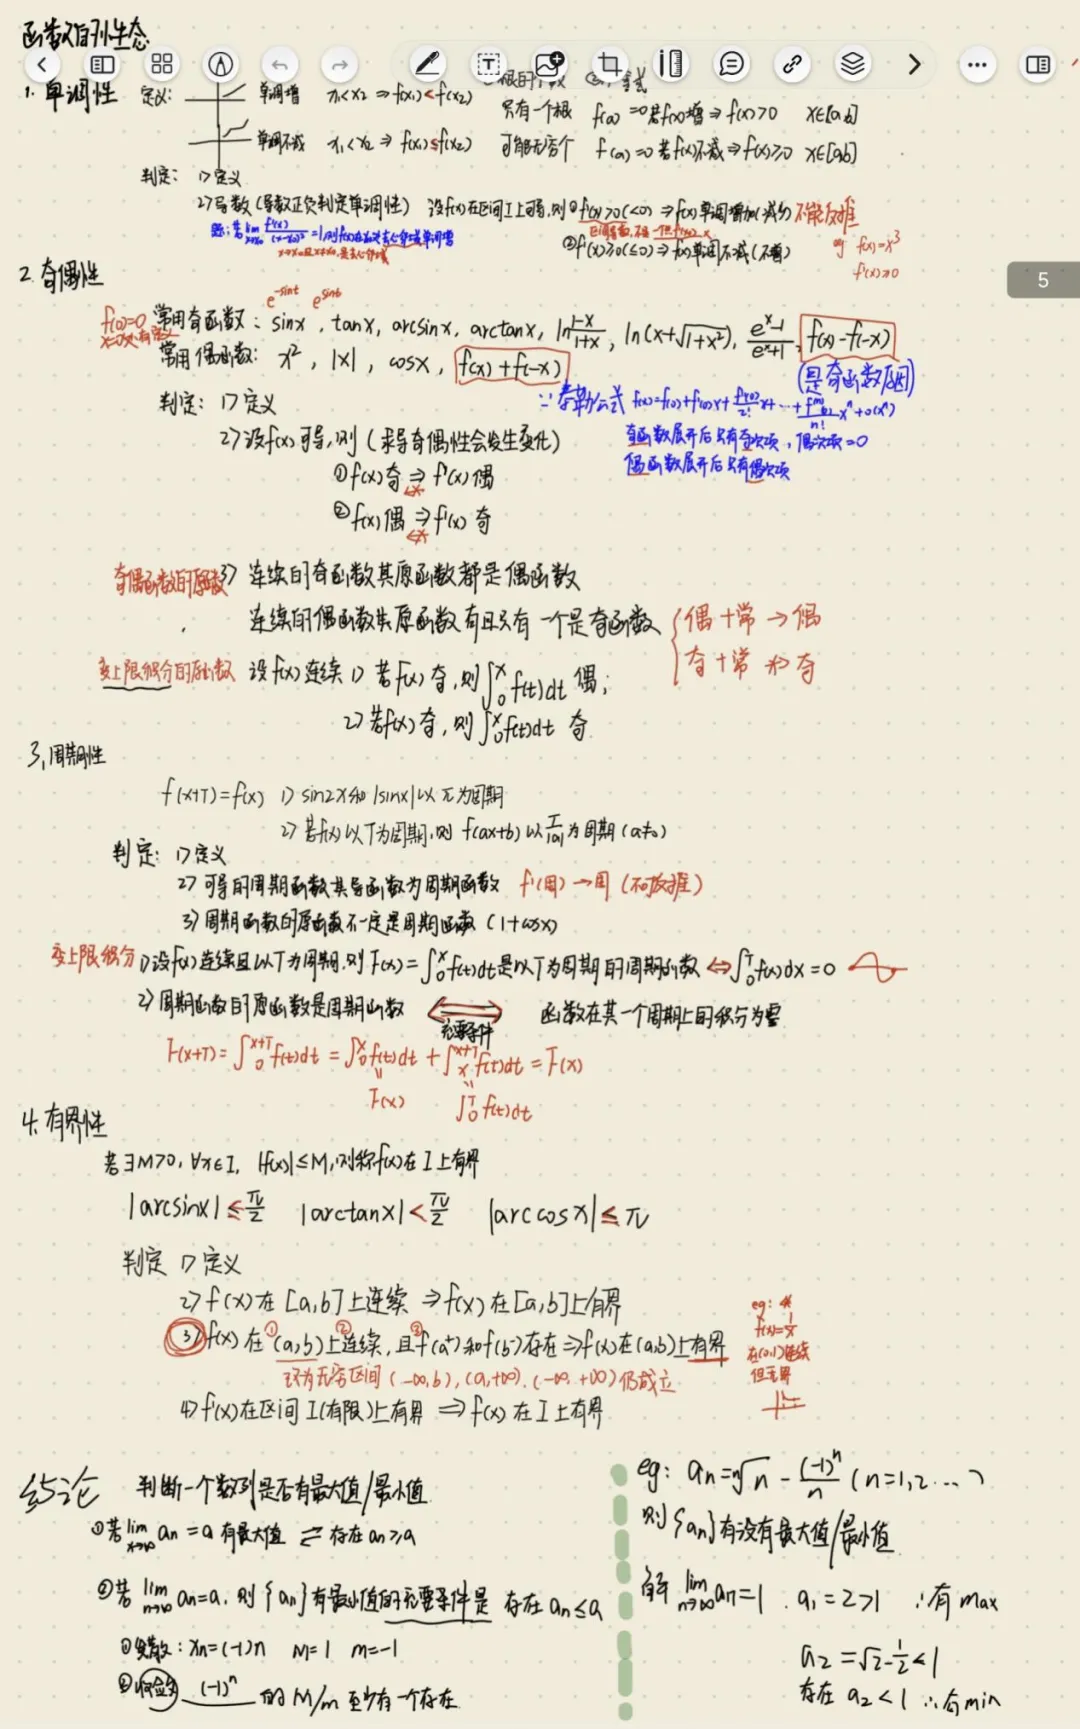 函数的性态
1. 单调性 定义: 单调增 x₁<x₂ ⇒ f(x₁)<f(x₂) 只有一个根 f(a)=0若f(x)增⇒f(x)>0 x∈[a,b]
单调不减 x₁<x₂ ⇒ f(x₁)≤f(x₂) 可能无穷个 f(a)=0若f(x)不减⇒f(x)≥0 x∈[a,b]
判定: 1) 定义
2) 导数 (导数正负判定单调性) 设f(x)在区间I上可导,则 ①f'(x)>0(<0)⇒f(x)单调增加(减少) 不能反推
②f'(x)≥0(≤0)⇒f(x)单调不减(不增)
eg: f(x)=x³
f'(x)≥0
5
2. 奇偶性
e^{-sint} e^{sint}
f(0)=0
常用奇函数: sinx, tanx, arcsinx, arctanx, ln\frac{1-x}{1+x}, ln(x+√(1+x²)), \frac{e^x-1}{e^x+1}, f(x)-f(-x)
常用偶函数: x², |x|, cosx, f(x)+f(-x)
(是奇函数原因)
∵ 泰勒公式
判定: 1) 定义
奇函数展开后只有奇次项, 偶次项=0
2) 设f(x)可导,则 (求导奇偶性会发生变化)
偶函数展开后只有偶次项
① f(x)奇 ⇒ f'(x)偶
② f(x)偶 ⇒ f'(x)奇
奇偶函数的原函数 3) 连续的奇函数其原函数都是偶函数
连续的偶函数其原函数有且只有一个是奇函数 { 偶+常→偶
奇+常 ↛ 奇
变上限积分的原函数 设f(x)连续 1) 若f(x)奇,则∫₀ˣf(t)dt 偶;
2) 若f(x)奇,则∫₀ˣf(t)dt 奇
3. 周期性
f(x+T)=f(x) 1) sin2x和|sinx|以π为周期
2) 若f(x)以T为周期,则 f(ax+b)以\frac{T}{|a|}为周期 (a≠0)
判定: 1) 定义
2) 可导的周期函数其导函数为周期函数 f'(周)→周 (不可反推)
3) 周期函数的原函数不一定是周期函数 (1+cosx)
变上限积分 1) 设f(x)连续且以T为周期,则F(x)=∫₀ˣf(t)dt是以T为周期的周期函数 ⇔ ∫₀ᵀf(x)dx=0
2) 周期函数的原函数是周期函数 ⟺ 函数在其一个周期上的积分为零
充要条件
F(x+T)=∫₀^{x+T}f(t)dt=∫₀ˣf(t)dt+∫ₓ^{x+T}f(t)dt=F(x)
F(x) ∫₀ᵀf(t)dt
4. 有界性
若∃M>0, ∀x∈I, |f(x)|≤M,则称f(x)在I上有界
|arcsinx|≤\frac{π}{2} |arctanx|<\frac{π}{2} |arccosx|≤π
判定 1) 定义
2) f(x)在[a,b]上连续 ⇒ f(x)在[a,b]上有界
3) f(x)在①(a,b)②上连续, 且③f(a⁺)和f(b⁻)存在⇒f(x)在(a,b)上有界
改为无穷区间 (-∞,b), (a,+∞), (-∞,+∞)仍成立
eg:
f(x)=\frac{1}{x}
在(0,1)连续
但无界
4) f'(x)在区间I(有限)上有界 ⇒ f(x)在I上有界
结论 判断一个数列是否有最大值/最小值
①若lim_{x→∞} aₙ=a 有最大值 ⇌ 存在aₙ≥a
②若 lim_{n→∞} aₙ=a, 则{aₙ}有最小值的充要条件是 存在aₙ≤a
①发散: xₙ=(-1)n M=1 m=-1
②收敛 (-1)ⁿ 的 M/m 至少有一个存在
eg: aₙ=ⁿ√n - \frac{(-1)ⁿ}{n} (n=1,2…)
则{aₙ}有没有最大值/最小值
解 lim_{n→∞} aₙ=1. a₁=2>1 ∴有max
a₂=√2-\frac{1}{2}<1
存在 a₂<1 ∴有min